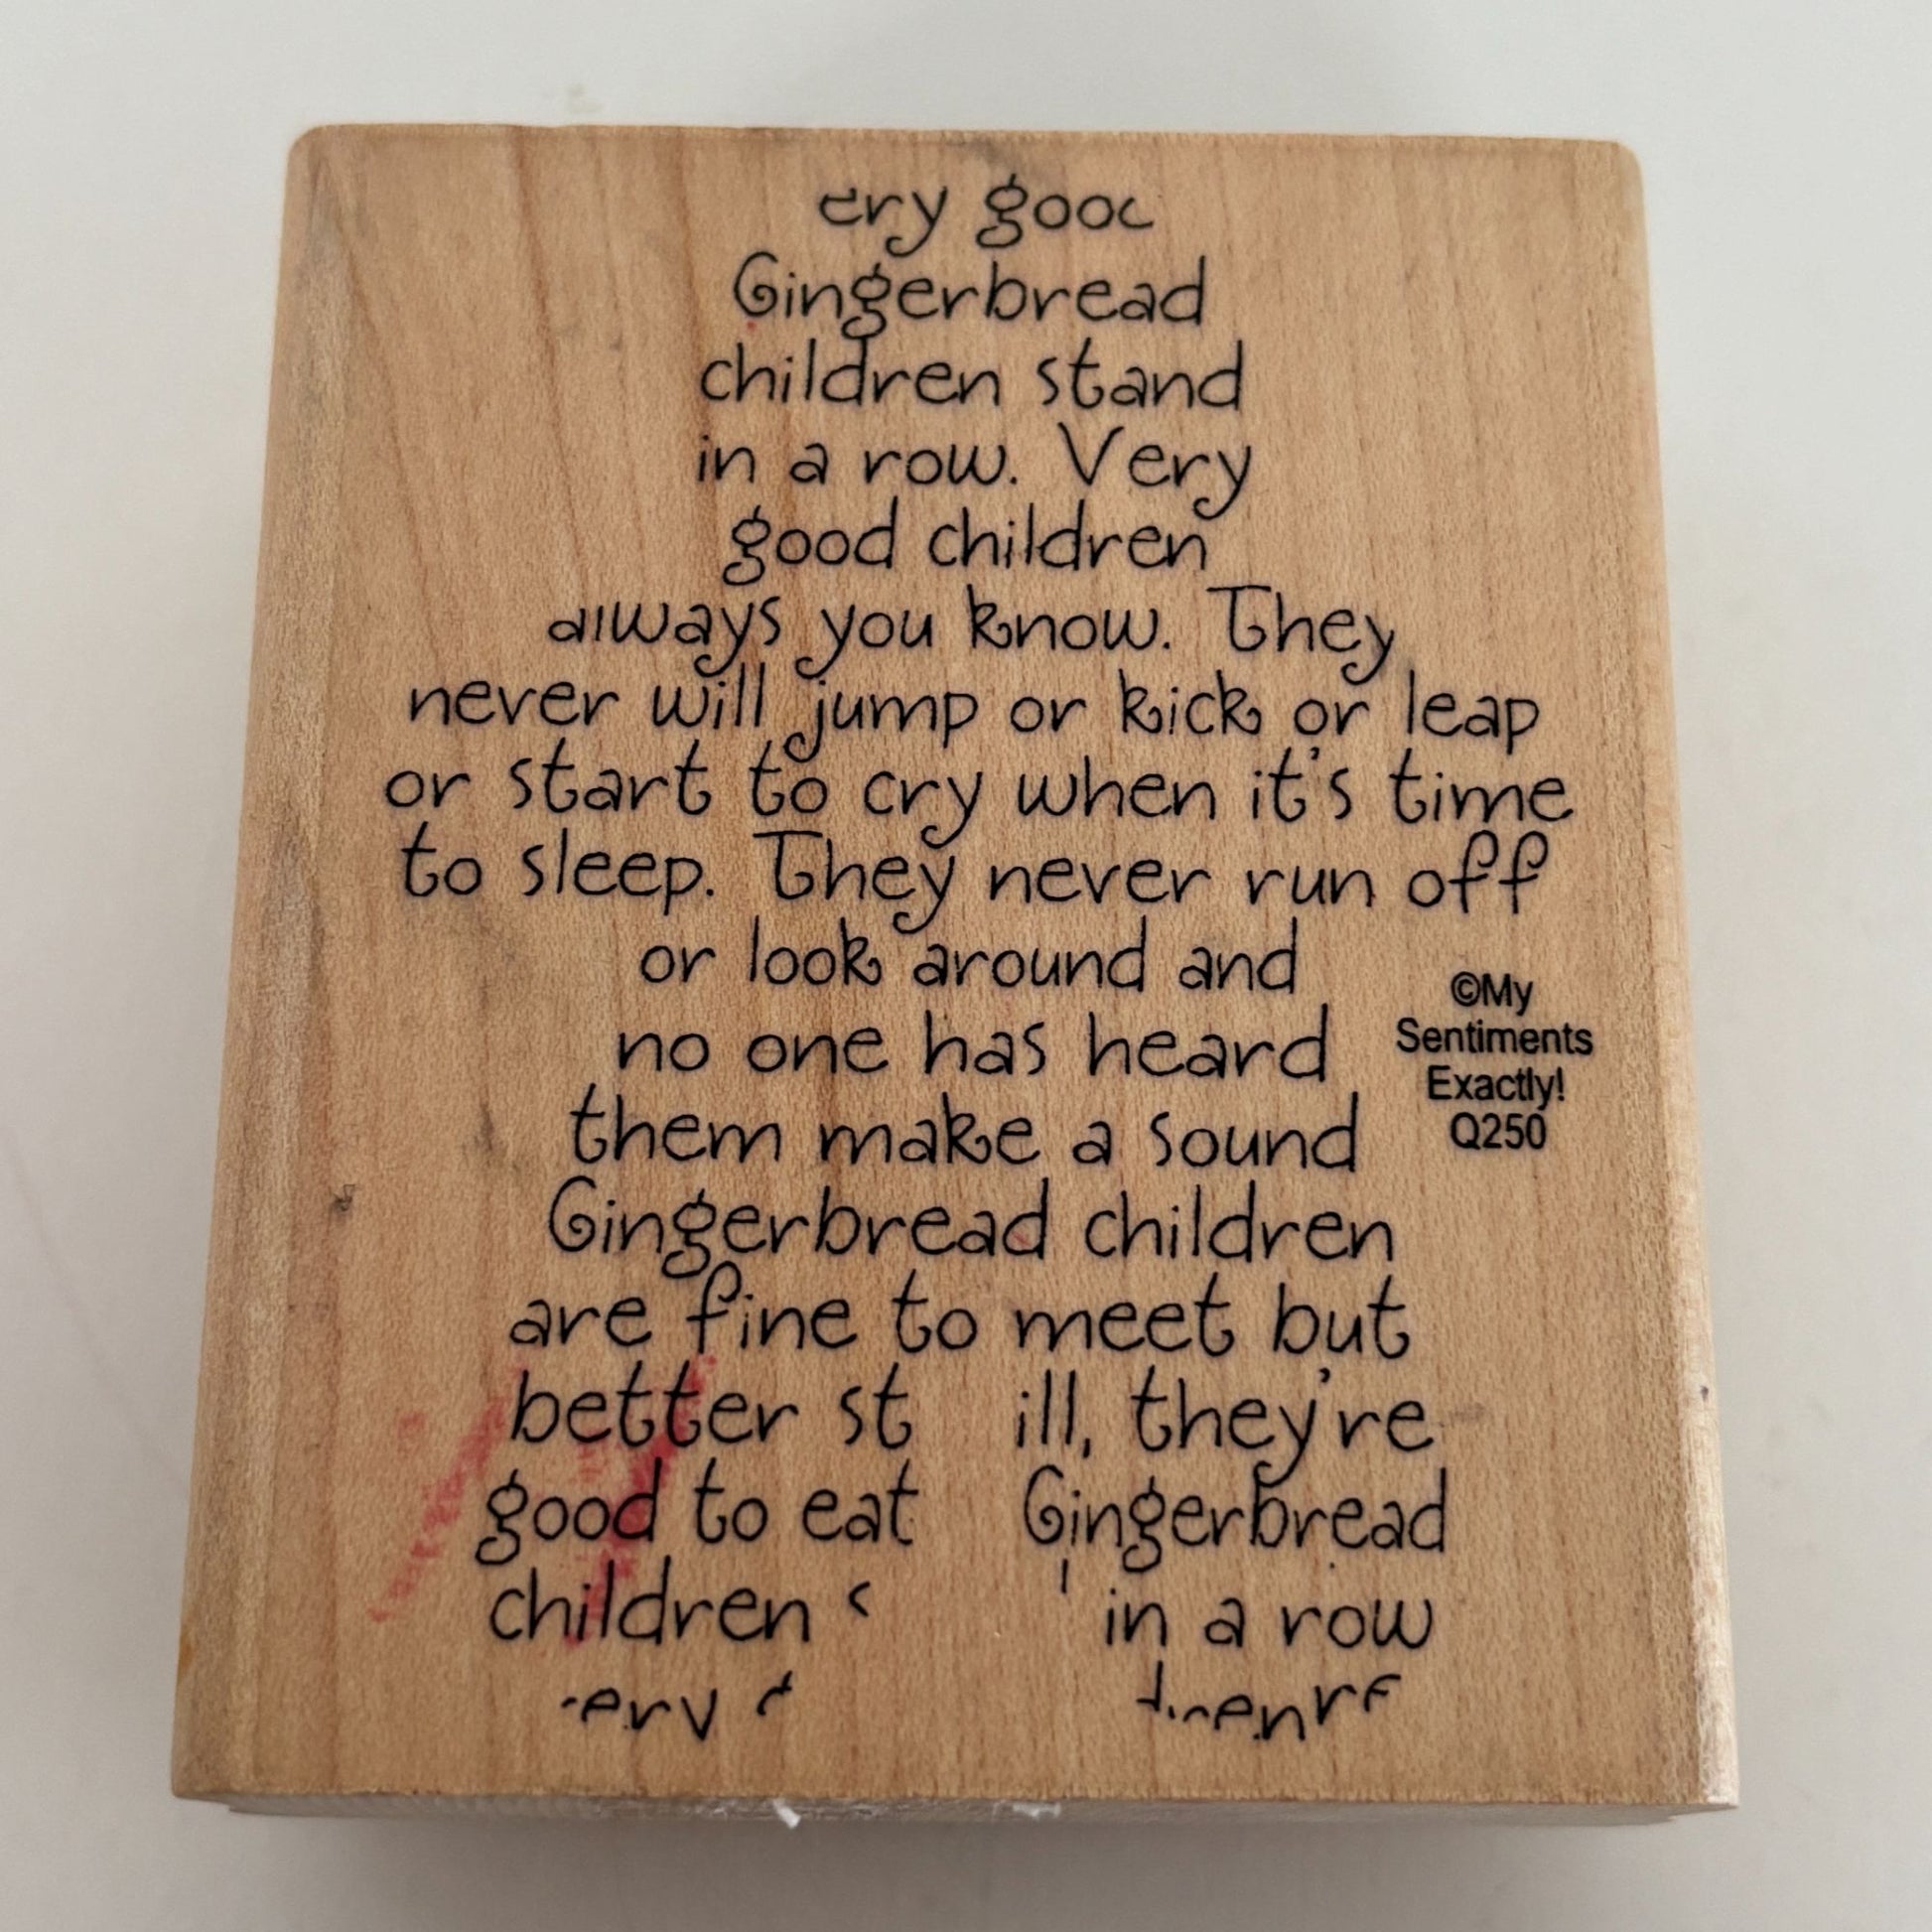 ery good
Gingerbread
children stand
in a row. Very
good children
always you know. They
never will jump or kick or leap
or start to cry when it's time
to sleep. They never run off
or look around and
no one has heard
them make a sound
Gingerbread children
are fine to meet but
better st ill, they're
good to eat Gingerbread
children in a row
©My
Sentiments
Exactly!
Q250